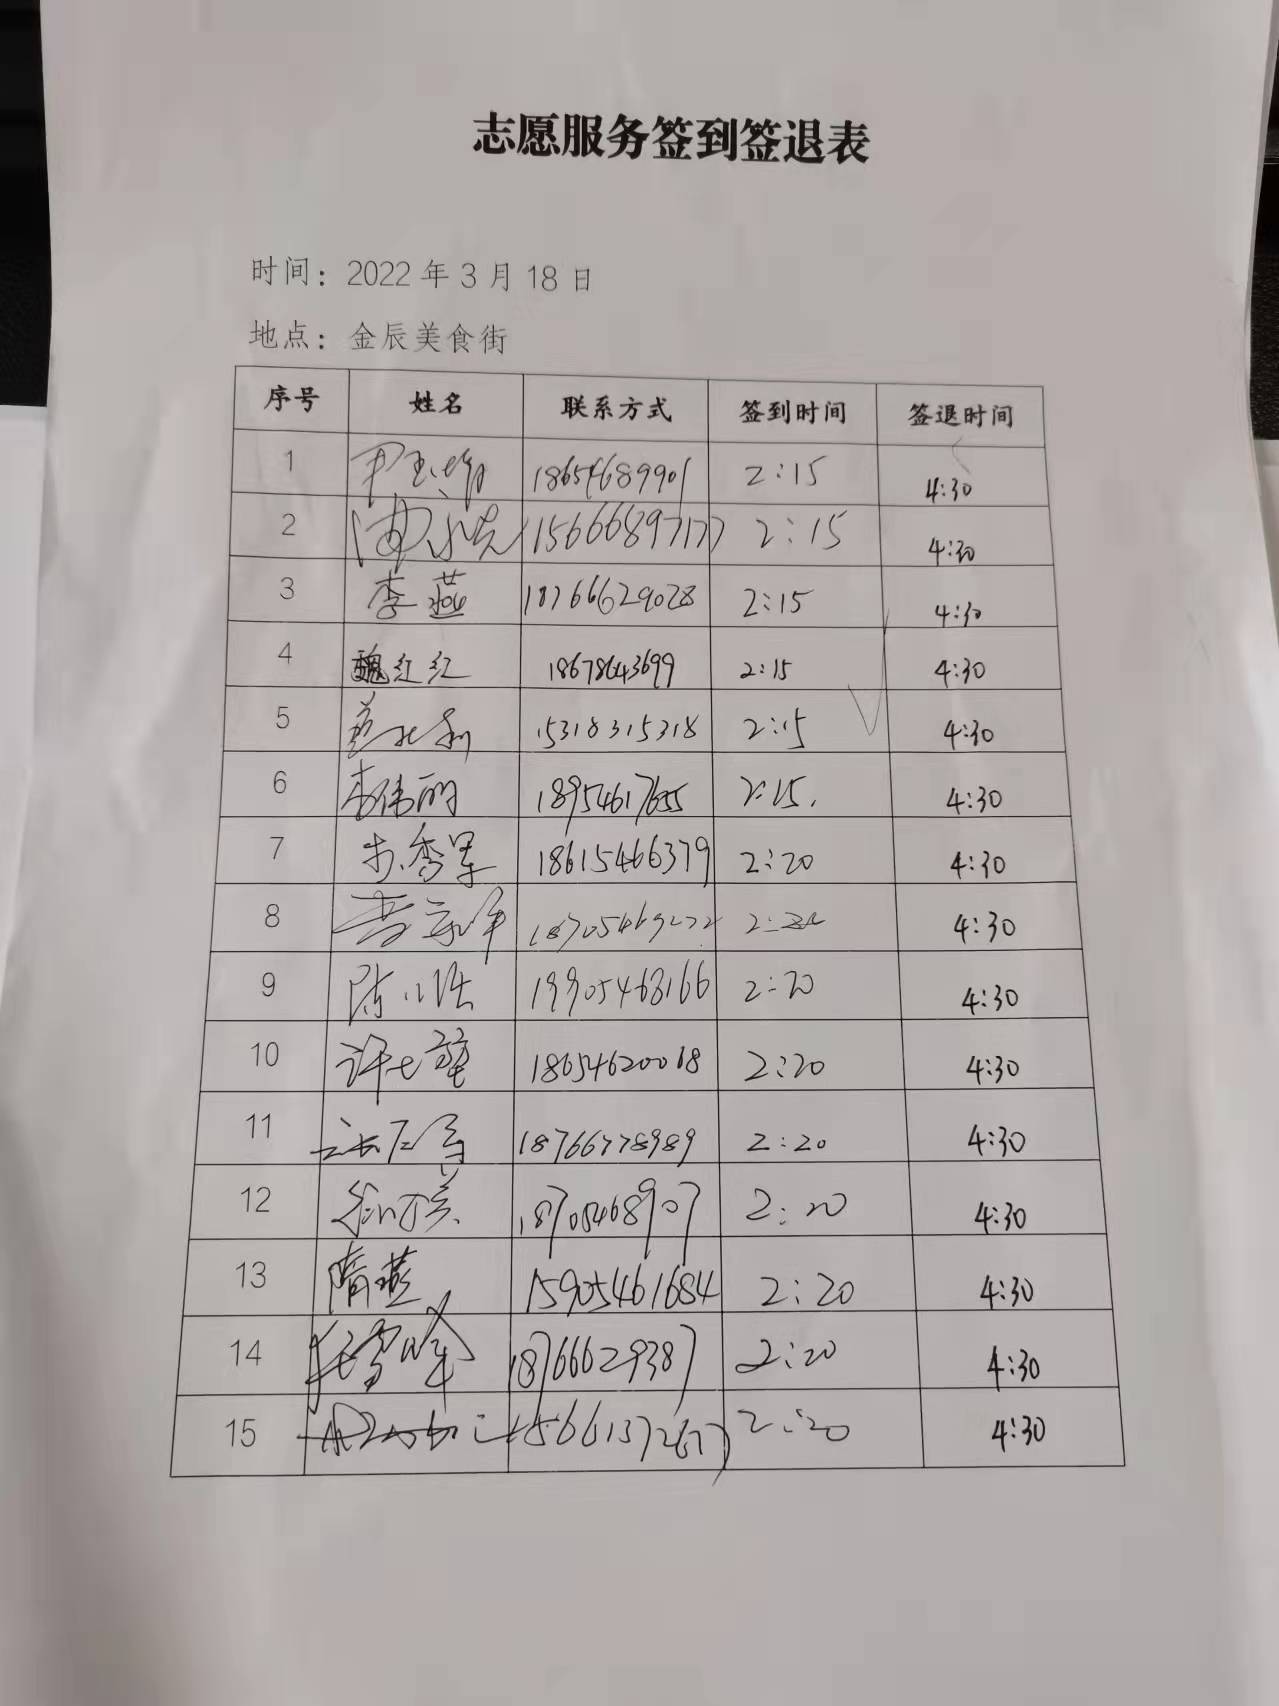 志愿服务签到签退表
时间：2022年3月18日
地点：金辰美食街
序号 姓名 联系方式 签到时间 签退时间
1 18654689901 2:15 4:30
2 15666897177 2:15 4:30
3 李燕 18766629028 2:15 4:30
4 魏红红 18678643699 2:15 4:30
5 15318315318 2:15 4:30
6 李伟丽 18954617655 2:15. 4:30
7 18615466379 2:20 4:30
8 4:30
9 19905468166 2:20 4:30
10 18654620068 2:20 4:30
11 18766778989 2:20 4:30
12 18705468907 2:20 4:30
13 隋燕 15905461684 2:20 4:30
14 18766629387 2:20 4:30
15 15661372677 2:20 4:30